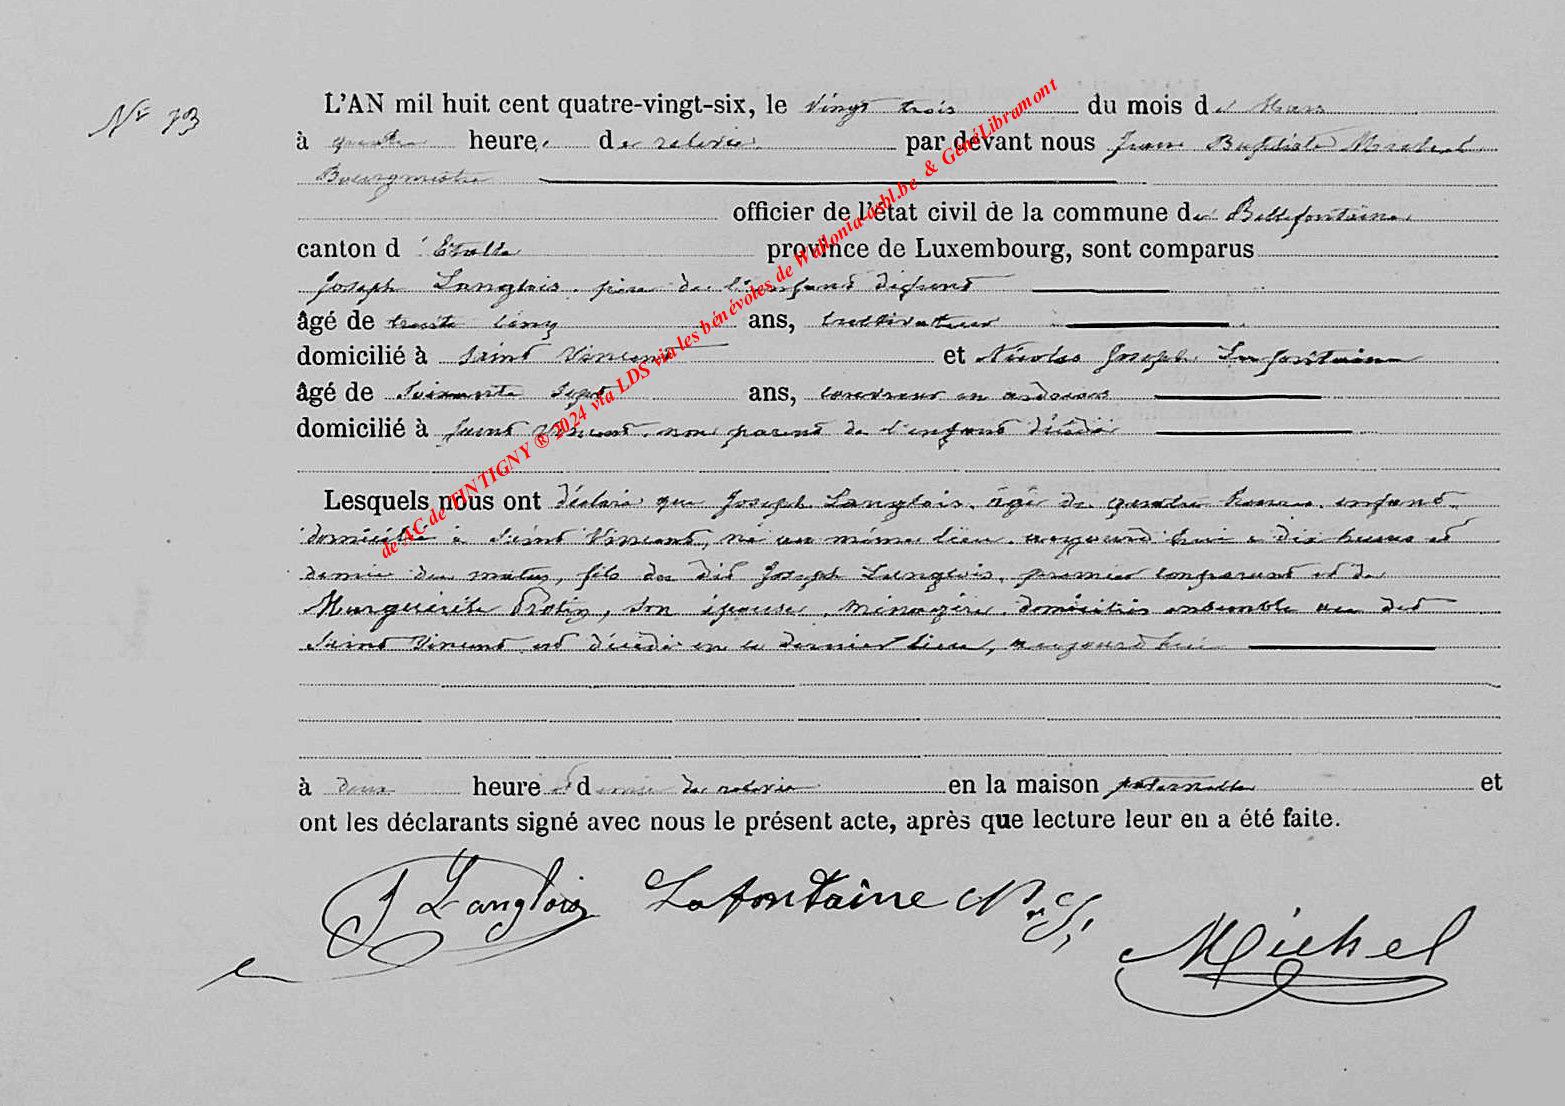 N° 13
L'AN mil huit cent quatre-vingt-six, le vingt trois du mois de Mars
à quatre heures de relevée par devant nous Jean Baptiste Michel
Bourgmestre
officier de l'état civil de la commune de Bellefontaine
canton d'Etalle province de Luxembourg, sont comparus
Joseph Langlois, père de l'enfant défunt
âgé de trente cinq ans, cultivateur
domicilié à Saint Vincent et Nicolas Joseph Lafontaine
âgé de soixante sept ans, couvreur en ardoises
domicilié à Saint Vincent, non parent de l'enfant décédé
Lesquels nous ont déclaré que Joseph Langlois, âgé de quatre heures, enfant
domicilié à Saint Vincent, né au même lieu aujourd'hui à dix heures et
demie du matin, fils du dit Joseph Langlois, premier comparant et de
Marguerite Protin, son épouse, ménagère, domiciliés ensemble au dit
Saint Vincent est décédé en ce dernier lieu, aujourd'hui
à deux heure et demie de relevée en la maison paternelle et
ont les déclarants signé avec nous le présent acte, après que lecture leur en a été faite.
J Langlois Lafontaine N J
Michel
de AC de TINTIGNY ® 2024 via LDS via les bénévoles de Wallonia asbl.be & GénéLibramont